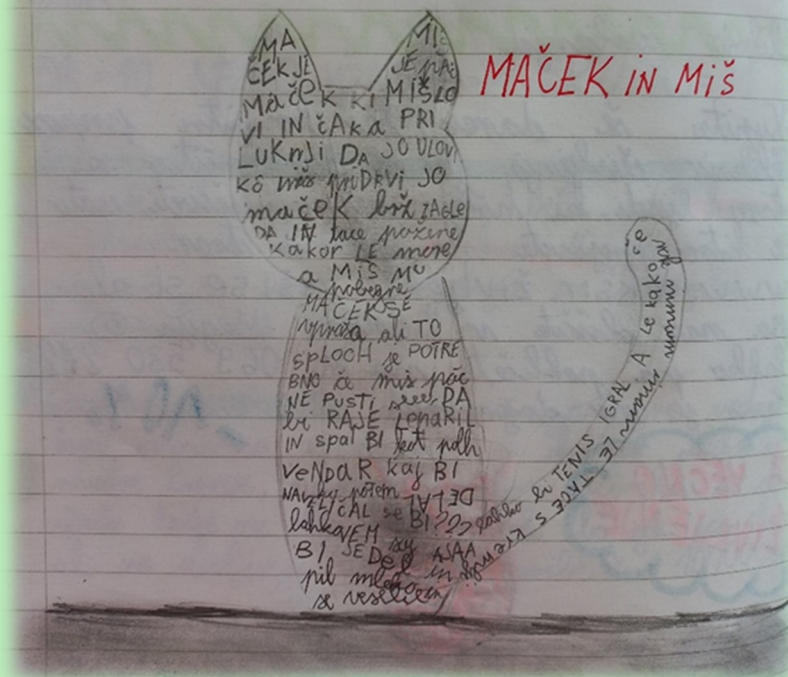 MAČEK IN MIŠ
MA
ČEK JE
MIŠ
JE PAČ
MAČEK KI MIŠ LO
VI IN ČAKA PRI
LUKNJI DA JO ULOVI
KO MIŠ PRIDRVI JO
MAČEK BRŽ ZAGLE
DA IN TACE POŽENE
KAKOR LE MORE
A MIŠ MU
POBEGNE
MAČEK SE
VPRAŠA ALI TO
SPLOCH JE POTRE
BNO ČE MIŠ PAČ
NE PUSTI SE DA
BI RAJE LENARIL
IN SPAL BI KOT POLH
VENDAR KAJ BI
POTEM DELAL
SE BI???
LAHKO
BI SEDEL IN
PIL MLEKO IN
SE VESELIL
LAHKO BI TENIS IGRAL A LE KAKO ČE
LE TACE S KREMPLJI